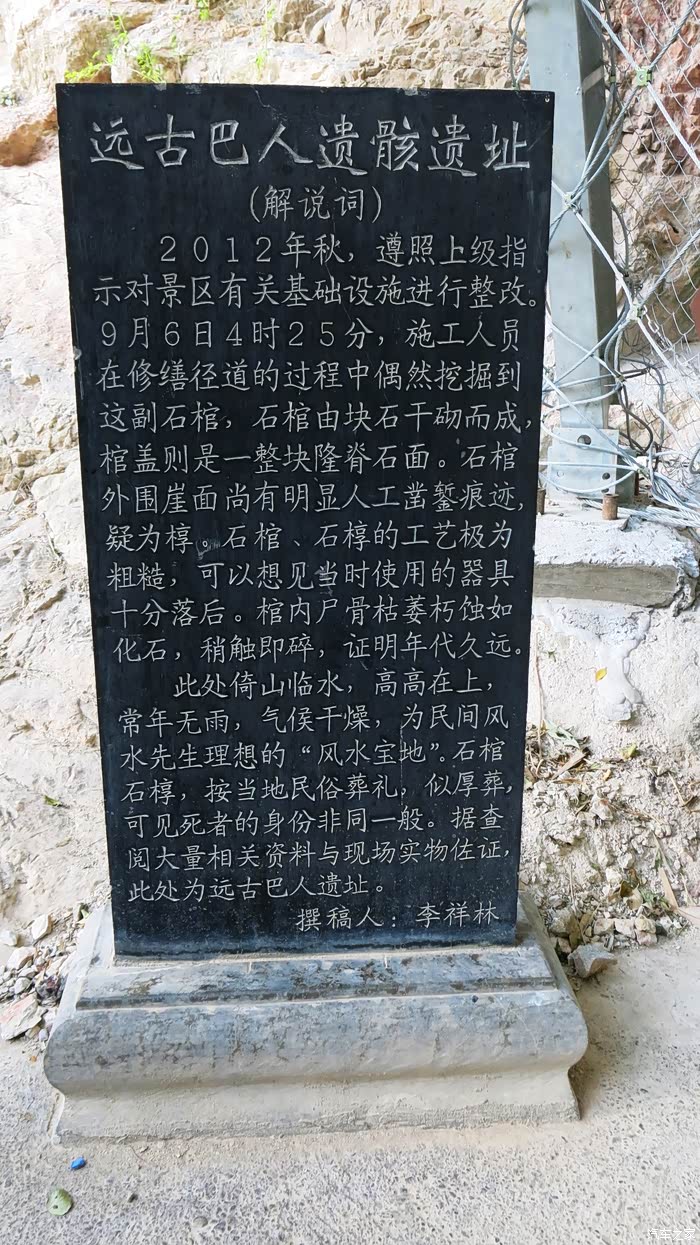 远古巴人遗骸遗址
(解说词)
2012年秋，遵照上级指
示对景区有关基础设施进行整改。
9月6日4时25分，施工人员
在修缮径道的过程中偶然挖掘到
这副石棺，石棺由块石干砌而成，
棺盖则是一整块隆脊石面。石棺
外围崖面尚有明显人工凿錾痕迹，
疑为椁。石棺、石椁的工艺极为
粗糙，可以想见当时使用的器具
十分落后。棺内尸骨枯萎朽蚀如
化石，稍触即碎，证明年代久远。
此处倚山临水，高高在上，
常年无雨，气侯干燥，为民间风
水先生理想的“风水宝地”。石棺
石椁，按当地民俗葬礼，似厚葬，
可见死者的身份非同一般。据查
阅大量相关资料与现场实物佐证，
此处为远古巴人遗址。
撰稿人：李祥林
汽车之家